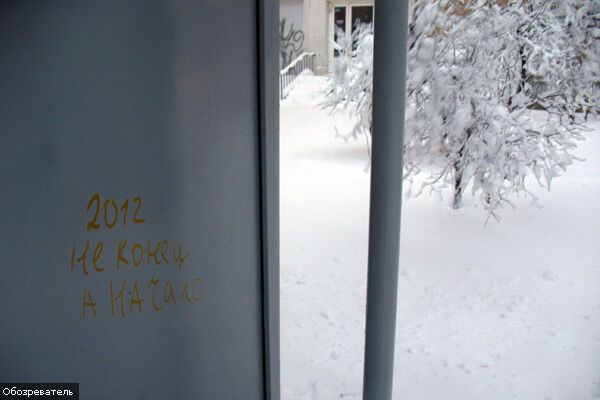 2012
не конец
а начало
Обозреватель